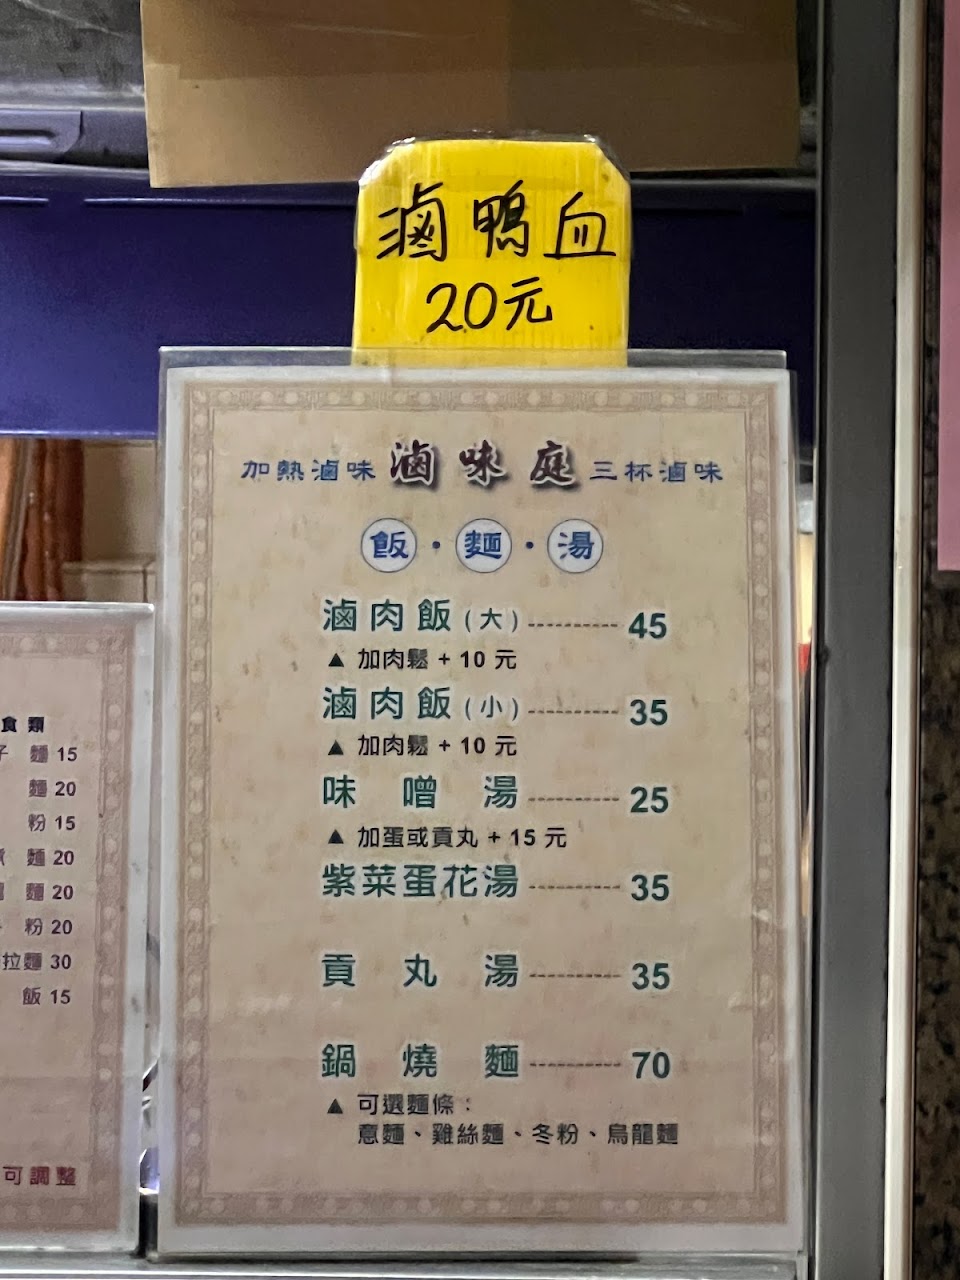 滷鴨血
20元
加熱滷味 滷味庭 三杯滷味
飯・麵・湯
滷肉飯(大)----------45
▲ 加肉鬆 + 10 元
滷肉飯(小)----------35
▲ 加肉鬆 + 10 元
味噌湯----------25
▲ 加蛋或貢丸 + 15 元
紫菜蛋花湯----------35
貢丸湯----------35
鍋燒麵----------70
▲ 可選麵條：
意麵、雞絲麵、冬粉、烏龍麵
食類
麵 15
麵 20
粉 15
麵 20
麵 20
粉 20
拉麵 30
飯 15
可調整